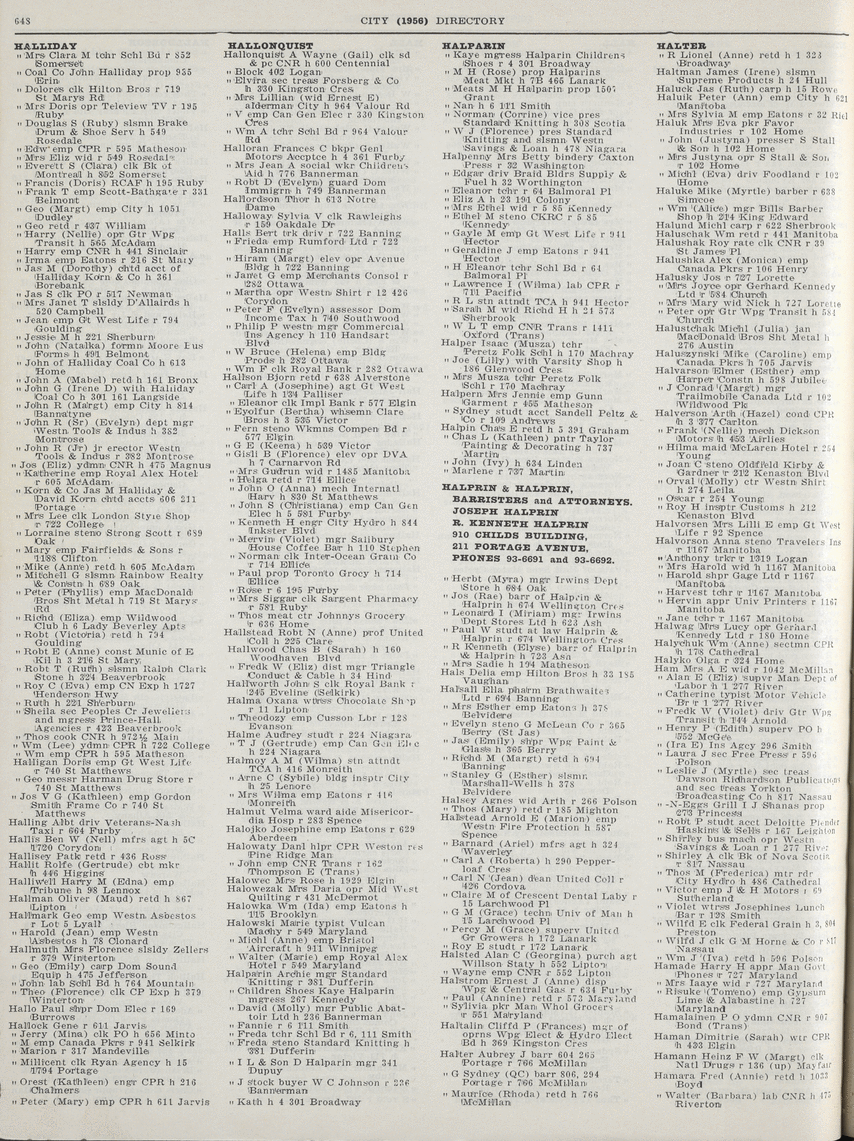 648
CITY (1956) DIRECTORY
HALLIDAY
" Mrs Clara M tchr Schl Bd r 852
Somerset
" Coal Co John Halliday prop 955
Erin
" Dolores clk Hilton Bros r 719
St Marys Rd
" Mrs Doris opr Teleview TV r 195
Ruby
" Douglas S (Ruby) slsmn Brake
Drum & Shoe Serv h 549
Rosedale
" Edw emp CPR r 595 Matheson
" Mrs Eliz wid r 549 Rosedale
" Everett S (Clara) clk Bk of
Montreal h 852 Somerset
" Francis (Doris) RCAF h 195 Ruby
" Frank T emp Scott-Bathgate r 331
Belmont
" Geo (Margt) emp City h 1051
Dudley
" Geo retd r 437 William
" Harry (Nellie) opr Gtr Wpg
Transit h 565 McAdam
" Harry emp CNR h 441 Sinclair
" Irma emp Eatons r 216 St Mary
" Jas M (Dorothy) chtd acct of
Halliday Korn & Co h 361
Borebank
" Jas S clk PO r 517 Newman
" Mrs Janet T slsldy D'Allairds h
520 Campbell
" Jean emp Gt West Life r 794
Goulding
" Jessie M h 221 Sherburn
" John (Natalka) formn Moore Bus
Forms h 491 Belmont
" John of Halliday Coal Co h 613
Home
" John A (Mabel) retd h 161 Bronx
" John G (Irene D) with Halliday
Coal Co h 301 161 Langside
" John R (Margt) emp City h 814
Bannatyne
" John R (Sr) (Evelyn) dept mgr
Westn Tools & Indus h 382
Montrose
" John R (Jr) jr erector Westn
Tools & Indus r 382 Montrose
" Jos (Eliz) ydmn CNR h 475 Magnus
" Katherine emp Royal Alex Hotel
r 605 McAdam
" Korn & Co Jas M Halliday &
David Korn chtd accts 606 211
Portage
" Mrs Lee clk London Style Shop
r 722 College
" Lorraine steno Strong Scott r 689
Oak
" Mary emp Fairfields & Sons r
1188 Clifton
" Mike (Anne) retd h 605 McAdam
" Mitchell G slsmn Rainbow Realty
& Constn h 689 Oak
" Peter (Phyllis) emp MacDonald
Bros Sht Metal h 719 St Marys
Rd
" Richd (Eliza) emp Wildwood
Club h 6 Lady Beverley Apts
" Robt (Victoria) retd h 794
Goulding
" Robt E (Anne) const Munic of E
Kil h 3 216 St Mary
" Robt T (Ruth) slsmn Ralph Clark
Stone h 324 Beaverbrook
" Roy C (Eva) emp CN Exp h 1727
Henderson Hwy
" Ruth h 221 Sherburn
" Sheila sec Peoples Cr Jewellers
and mgress Prince-Hall
Agencies r 423 Beaverbrook
" Thos cook CNR h 972½ Main
" Wm (Lee) ydmn CPR h 722 College
" Wm emp CPR h 595 Matheson
Halligan Doris emp Gt West Life
r 740 St Matthews
" Geo messr Harman Drug Store r
740 St Matthews
" Jos V G (Kathleen) emp Gordon
Smith Frame Co r 740 St
Matthews
Halling Albt driv Veterans-Nash
Taxi r 664 Furby
Hallis Ben W (Nell) mfrs agt h 5C
1720 Corydon
Hallisey Patk retd r 436 Ross
Hallit Rolfe (Gertrude) cbt mkr
h 446 Higgins
Halliwell Harry M (Edna) emp
Tribune h 98 Lennox
Hallman Oliver (Maud) retd h 867
Lipton
Hallmark Geo emp Westn Asbestos
r Lot 5 Lyall
" Harold (Jean) emp Westn
Asbestos h 78 Clonard
Hallmuth Mrs Florence slsldy Zellers
r 379 Winterton
" Geo (Emily) carp Dom Sound
Equip h 475 Jefferson
" John lab Schl Bd h 764 Mountain
" Theo (Florence) clk CP Exp h 379
Winterton
Hallo Paul shpr Dom Elec r 169
Burrows
Hallock Gene r 611 Jarvis
" Jerry (Mina) clk PO h 656 Minto
" M emp Canada Pkrs r 941 Selkirk
" Marion r 317 Mandeville
" Millicent clk Ryan Agency r 15
1794 Portage
" Orest (Kathleen) engr CPR h 216
Chalmers
" Peter (Mary) emp CPR h 611 Jarvis
HALLONQUIST
Hallonquist A Wayne (Gail) clk sd
& pc CNR h 600 Centennial
" Block 402 Logan
" Elvira sec treas Forsberg & Co
h 330 Kingston Cres
" Mrs Lillian (wid Ernest E)
alderman City h 964 Valour Rd
" V emp Can Gen Elec r 330 Kingston
Cres
" Wm A tchr Schl Bd r 964 Valour
Rd
Halloran Frances C bkpr Genl
Motors Accptce h 4 361 Furby
" Mrs Jean A social wkr Childrens
Aid h 776 Bannerman
" Robt D (Evelyn) guard Dom
Immigrn h 749 Bannerman
Hallordson Thor h 613 Notre
Dame
Halloway Sylvia V clk Rawleighs
r 159 Oakdale Dr
Halls Bert trk driv r 722 Banning
" Frieda emp Rumford Ltd r 722
Banning
" Hiram (Margt) elev opr Avenue
Bldg h 722 Banning
" Janet G emp Merchants Consol r
282 Ottawa
" Martha opr Westn Shirt r 12 426
Corydon
" Peter F (Evelyn) assessor Dom
Income Tax h 740 Southwood
" Philip P westn mgr Commercial
Ins Agency h 110 Handsart
Blvd
" W Bruce (Helena) emp Bldg
Prods h 282 Ottawa
" Wm F clk Royal Bank r 282 Ottawa
Hallson Bjorn retd r 638 Alverstone
" Carl A (Josephine) agt Gt West
Life h 134 Palliser
" Eleanor clk Impl Bank r 577 Elgin
" Eyolfur (Bertha) whsemn Clare
Bros h 3 535 Victor
" Fern steno Wkmns Compen Bd r
577 Elgin
" G E (Keena) h 539 Victor
" Gisli B (Florence) elev opr DVA
h 7 Carnarvon Rd
" Mrs Gudrun wid r 1485 Manitoba
" Helga retd r 714 Ellice
" John O (Anna) mech Internatl
Harv h 830 St Matthews
" John S (Christiana) emp Can Gen
Elec h 5 581 Furby
" Kenneth H engr City Hydro h 844
Inkster Blvd
" Mervin (Violet) mgr Salibury
House Coffee Bar h 110 Stephen
" Norman clk Inter-Ocean Grain Co
r 714 Ellice
" Paul prop Toronto Grocy h 714
Ellice
" Rose r 6 195 Furby
" Mrs Siggar clk Sargent Pharmacy
r 581 Ruby
" Thos meat ctr Johnnys Grocery
r 626 Home
Hallstead Robt N (Anne) prof United
Coll h 225 Clare
Hallwood Chas B (Sarah) h 160
Woodhaven Blvd
" Fredk W (Eliz) dist mgr Triangle
Conduct & Cable h 34 Hind
Hallworth John S clk Royal Bank r
245 Eveline (Selkirk)
Halma Oxana wdress Chocolate Shop
r 11 Lipton
" Theodozy emp Cusson Lbr r 128
Evanson
Halme Audrey studt r 224 Niagara
" T J (Gertrude) emp Can Gen Elec
h 224 Niagara
Halmoy A M (Wilma) stn attndt
TCA h 416 Monreith
" Arne C (Sybile) bldg insptr City
h 25 Lenore
" Mrs Wilma emp Eatons r 416
Monreith
Halmut Velma ward aide Misericor-
dia Hosp r 283 Spence
Halojko Josephine emp Eatons r 629
Aberdeen
Halowaty Danl hlpr CPR Weston res
Pine Ridge Man
" John emp CNR Trans r 162
Thompson E (Trans)
Halowec Mrs Rose h 1929 Elgin
Halowezak Mrs Daria opr Mid West
Quilting r 431 McDermot
Halowka Wm (Ida) emp Eatons h
115 Brooklyn
Halowski Marie typist Vulcan
Machy r 549 Maryland
" Michl (Anne) emp Bristol
Aircraft h 911 Winnipeg
" Walter (Marie) emp Royal Alex
Hotel r 549 Maryland
Halparin Archie mgr Standard
Knitting r 381 Dufferin
" Children Shoes Kaye Halparin
mgress 267 Kennedy
" David (Molly) mgr Public Abat-
toir Ltd h 236 Bannerman
" Fannie r 6 111 Smith
" Freda tchr Schl Bd r 6, 111 Smith
" Freda steno Standard Knitting h
381 Dufferin
" I L & Son D Halparin mgr 341
Dupuy
" J stock buyer W C Johnson r 236
Bannerman
" Kath h 4 301 Broadway
HALPARIN
" Kaye mgress Halparin Childrens
Shoes r 4 301 Broadway
" M H (Rose) prop Halparins
Meat Mkt h 7B 465 Lanark
" Meats M H Halparin prop 1507
Grant
" Nan h 6 111 Smith
" Norman (Corrine) vice pres
Standard Knitting h 308 Scotia
" W J (Florence) pres Standard
Knitting and slsmn Westn
Savings & Loan h 478 Niagara
Halpenny Mrs Betty bindery Caxton
Press r 32 Washington
" Edgar driv Braid Bldrs Supply &
Fuel h 32 Worthington
" Eleanor tchr r 64 Balmoral Pl
" Eliz A h 23 191 Colony
" Mrs Ethel wid r 5 85 Kennedy
" Ethel M steno CKRC r 5 85
Kennedy
" Gayle M emp Gt West Life r 941
Hector
" Geraldine J emp Eatons r 941
Hector
" H Eleanor tchr Schl Bd r 64
Balmoral Pl
" Lawrence I (Wilma) lab CPR r
711 Pacific
" R L stn attndt TCA h 941 Hector
" Sarah M wid Richd H h 21 573
Sherbrook
" W L T emp CNR Trans r 1411
Oxford (Trans)
Halper Isaac (Musza) tchr
Peretz Folk Schl h 170 Machray
" Joe (Lilly) with Varsity Shop h
186 Glenwood Cres
" Mrs Musza tchr Peretz Folk
Schl r 170 Machray
Halpern Mrs Jennie emp Gunn
Garment r 455 Matheson
" Sydney studt acct Sandell Peltz &
Co r 109 Andrews
Halpin Chas E retd h 5 391 Graham
" Chas L (Kathleen) pntr Taylor
Painting & Decorating h 737
Martin
" John (Ivy) h 634 Linden
" Marlene r 737 Martin
HALPRIN & HALPRIN,
BARRISTERS and ATTORNEYS.
JOSEPH HALPRIN
R. KENNETH HALPRIN
910 CHILDS BUILDING,
211 PORTAGE AVENUE,
PHONES 93-6691 and 93-6692.
" Herbt (Myra) mgr Irwins Dept
Store h 684 Oak
" Jos (Rae) barr of Halprin &
Halprin h 674 Wellington Cres
" Leonard I (Miriam) mgr Irwins
Dept Stores Ltd h 623 Ash
" Paul W studt at law Halprin &
Halprin r 674 Wellington Cres
" R Kenneth (Elyse) barr of Halprin
& Halprin h 723 Ash
" Mrs Sadie h 194 Matheson
Hals Delia emp Hilton Bros h 33 185
Vaughan
Halsall Ella pharm Brathwaites
Ltd r 694 Banning
" Mrs Esther emp Eatons h 378
Belvidere
" Evelyn steno G McLean Co r 365
Berry (St Jas)
" Jas (Emily) shpr Wpg Paint &
Glass h 365 Berry
" Richd M (Margt) retd h 694
Banning
" Stanley G (Esther) slsmn
Marshall-Wells h 378
Belvidere
Halsey Agnes wid Arth r 266 Polson
" Thos (Mary) retd r 185 Mighton
Halstead Arnold E (Marion) emp
Westn Fire Protection h 587
Spence
" Barnard (Ariel) mfrs agt h 324
Waverley
" Carl A (Roberta) h 290 Pepper-
loaf Cres
" Carl N (Jean) dean United Coll r
426 Cordova
" Claire M of Crescent Dental Laby r
15 Larchwood Pl
" G M (Grace) techn Univ of Man h
15 Larchwood Pl
" Percy M (Grace) superv United
Gr Growers h 172 Lanark
" Roy E studt r 172 Lanark
Halsted Alan C (Georgina) purch agt
Willson Staty h 552 Lipton
" Wayne emp CNR r 552 Lipton
Halstrom Ernest J (Anne) disp
Wpg & Central Gas r 634 Furby
" Paul (Annine) retd r 573 Maryland
" Sylivia pkr Man Whol Grocers
r 551 Maryland
Haltalin Cliffd P (Frances) mgr of
oprns Wpg Elect & Hydro Elect
Bd h 369 Kingston Cres
Halter Aubrey J barr 604 265
Portage r 766 McMillan
" G Sydney (QC) barr 806, 294
Portage r 766 McMillan
" Maurice (Rhoda) retd h 766
McMillan
HALTER
" R Lionel (Anne) retd h 1 323
Broadway
Haltman James (Irene) slsmn
Supreme Products h 24 Hull
Haluck Jas (Ruth) carp h 15 Rowe
Haluik Peter (Ann) emp City h 621
Manitoba
" Mrs Sylvia M emp Eatons r 32
Haluk Mrs Eva pkr Favor
Industries r 102 Home
" John (Justyna) presser S Stall
& Son h 102 Home
" Mrs Justyna opr S Stall & Son
r 102 Home
" Michl (Eva) driv Foodland r 102
Home
Haluke Mike (Myrtle) barber r 638
Simcoe
" Wm (Alice) mgr Bills Barber
Shop h 214 King Edward
Halund Michl carp r 622 Sherbrook
Haluschak Wm retd r 441 Manitoba
Halushak Roy rate clk CNR r 39
St James Pl
Halushka Alex (Monica) emp
Canada Pkrs r 106 Henry
Halusky Jos r 727 Lorette
" Mrs Joyce opr Gerhard Kennedy
Ltd r 584 Church
" Mrs Mary wid Nick h 727 Lorette
" Peter opr Gtr Wpg Transit h 584
Church
Halustchak Michl (Julia) jan
MacDonald Bros Sht Metal h
276 Austin
Haluszynski Mike (Caroline) emp
Canada Pkrs h 705 Jarvis
Halvarson Elmer (Esther) emp
Harper Constn h 598 Jubilee
" J Conrad (Margt) mgr
Trailmobile Canada Ltd r 102
Wildwood Pk
Halverson Arth (Hazel) cond CPR
h 3 377 Carlton
" Frank (Nellie) mech Dickson
Motors h 453 Airlies
" Hilma maid McLaren Hotel r 254
Young
" Joan C steno Oldfield Kirby &
Gardner r 212 Kenaston Blvd
" Orval (Molly) ctr Westn Shirt
h 274 Leila
" Oscar r 254 Young
" Roy H insptr Customs h 212
Kenaston Blvd
Halvorsen Mrs Lilli E emp Gt West
Life r 92 Spence
Halvorson Anna steno Travelers Ins
r 1167 Manitoba
" Anthony trkr r 1319 Logan
" Mrs Harold wid h 1167 Manitoba
" Harold shpr Gage Ltd r 1167
Manitoba
" Harvest tchr r 1167 Manitoba
" Hervin appr Univ Printers r 1167
Manitoba
" Jane tchr r 1167 Manitoba
Halwag Mrs Lucy opr Gerhard
Kennedy Ltd r 180 Home
Halychuk Wm (Anne) sectmn CPR
h 178 Cathedral
Halyko Olga r 324 Home
Ham Mrs A E wid r 1042 McMillan
" Alan E (Eliz) supvr Man Dept of
Labor h 1 277 River
" Catherine typist Motor Vehicle
Br r 1 277 River
" Fredk W (Violet) driv Gtr Wpg
Transit h 144 Arnold
" Henry P (Edith) superv PO h
552 McGee
" (Ira E) Ins Agcy 296 Smith
" Laura J sec Free Press r 596
Polson
" Leslie J (Myrtle) sec treas
Dawson Richardson Publications
and sec treas Yorkton
Broadcasting Co h 817 Nassau
" -N-Eggs Grill I J Shanas prop
273 Princess
" Robt P studt acct Deloitte Plender
Haskins & Sells r 167 Leighton
" Shirley bus mach opr Westn
Savings & Loan r 1 277 River
" Shirley A clk Bk of Nova Scotia
r 817 Nassau
" Thos M (Frederica) mtr rdr
City Hydro h 486 Cathedral
" Victor emp J & H Motors r 69
Sutherland
" Violet wtrss Josephines Lunch
Bar r 128 Smith
" Wilfd E clk Federal Grain h 3, 804
Preston
" Wilfd J clk G M Horne & Co r 817
Nassau
" Wm J (Iva) retd h 596 Polson
Hamade Harry H appr Man Govt
Phones r 727 Maryland
" Mrs Isaye wid r 727 Maryland
" Risuke (Tomeno) emp Gypsum
Lime & Alabastine h 727
Maryland
Hamalainen P O ydmn CNR r 907
Bond (Trans)
Haman Dimitrie (Sarah) wtr CPR
h 433 Elgin
Hamann Heinz F W (Margt) clk
Natl Drugs r 136 (up) Mayfair
Hamara Fred (Annie) retd h 1033
Boyd
" Walter (Barbara) lab CNR h 475
Riverton